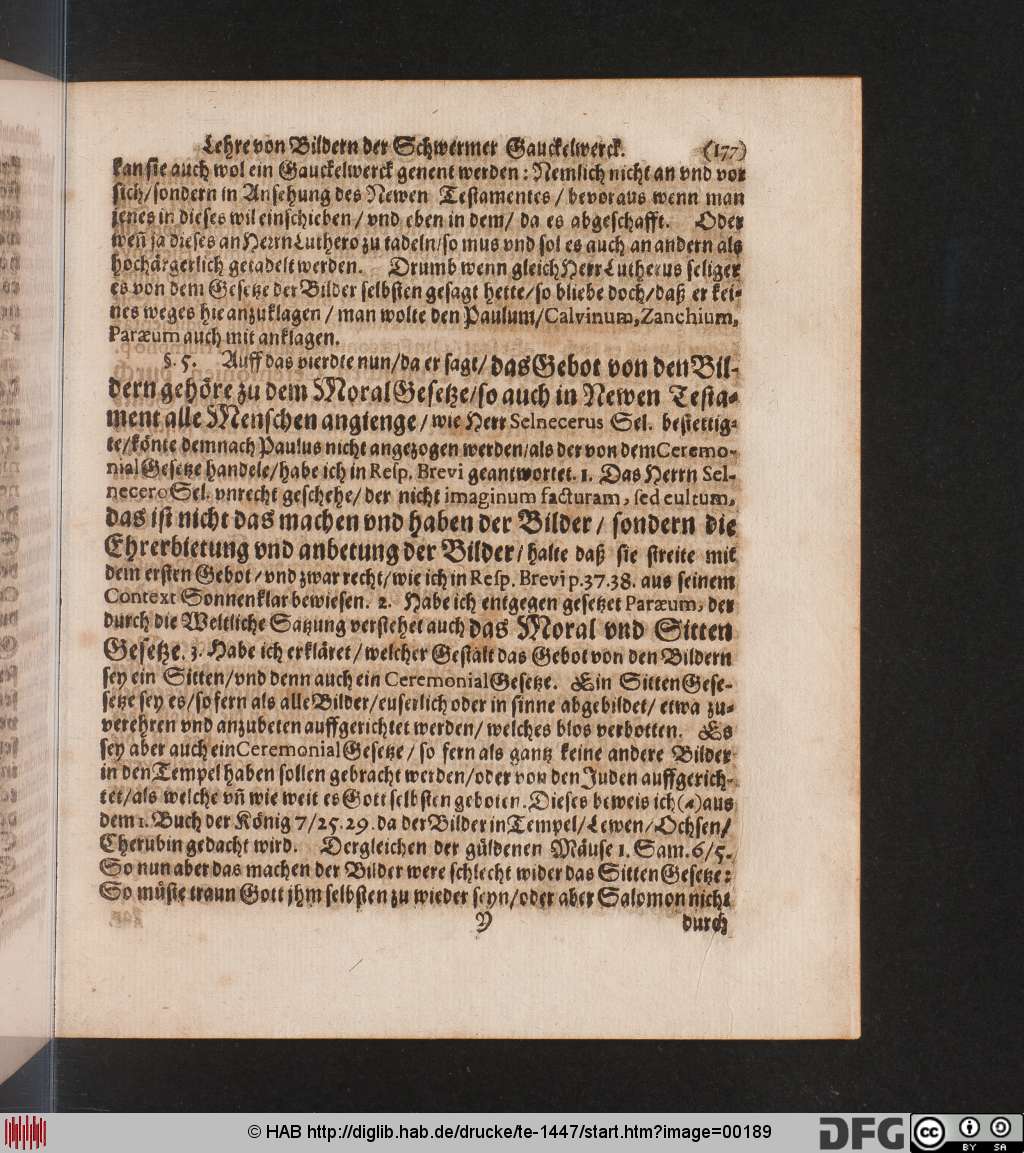 Lehre von Bildern der Schwermer Gauckelwerck. (177)
kan sie auch wol ein Gauckelwerck genent werden: Nemlich nicht an vnd vor
sich/sondern in Ansehung des Newen Testamentes / bevoraus wenn man
jenes in dieses wil einschieben / vnd eben in dem/ da es abgeschafft. Oder
weñ ja dieses an Herrn Luthero zu tadeln/so mus vnd sol es auch an andern als
hochärgerlich getadelt werden. Drumb wenn gleich Herr Lutherus seliger
es von dem Gesetze der Bilder selbsten gesagt hette/so bliebe doch/daß er kei-
nes weges hie anzuklagen / man wolte den Paulum/Calvinum, Zanchium,
Paræum auch mit anklagen.
§. 5. Auff das vierdte nun/da er sagt/ das Gebot von den Bil-
dern gehöre zu dem Moral Gesetze/so auch in Newen Testa-
ment alle Menschen angienge / wie Herr Selnecerus Sel. bestettig-
te/könte demnach Paulus nicht angezogen werden/als der von dem Ceremo-
nial Gesetze handele/habe ich in Resp. Brevi geantwortet. 1. Das Herrn Sel-
necero Sel. vnrecht geschehe/ der nicht imaginum facturam, sed cultum,
das ist nicht das machen vnd haben der Bilder / sondern die
Ehrerbietung vnd anbetung der Bilder/ halte daß sie streite mit
dem ersten Gebot/vnd zwar recht/wie ich in Resp. Brevi p. 37. 38. aus seinem
Context Sonnenklar bewiesen. 2. Habe ich entgegen gesetzet Paræum, der
durch die Weltliche Satzung verstehet auch das Moral vnd Sitten
Gesetze. 3. Habe ich erkläret / welcher Gestalt das Gebot von den Bildern
sey ein Sitten/vnd denn auch ein Ceremonial Gesetze. Ein Sitten Gese-
setze sey es/so fern als alle Bilder/euserlich oder in sinne abgebildet/ etwa zu-
verehren vnd anzubeten auffgerichtet werden/ welches blos verbotten. Es
sey aber auch ein Ceremonial Gesetze / so fern als gantz keine andere Bilder
in den Tempel haben sollen gebracht werden/oder von den Juden auffgerich-
tet/als welche vñ wie weit es Gott selbsten geboten. Dieses beweis ich (a) aus
dem 1. Buch der König 7/25. 29. da der Bilder in Tempel/Lewen/Ochsen/
Cherubin gedacht wird. Dergleichen der güldenen Mäuse 1. Sam. 6/5.
So nun aber das machen der Bilder were schlecht wider das Sitten Gesetze:
So müste traun Gott jhm selbsten zu wieder seyn/oder aber Salomon nicht
Y durch
© HAB http://diglib.hab.de/drucke/te-1447/start.htm?image=00189
DFG
cc
BY SA